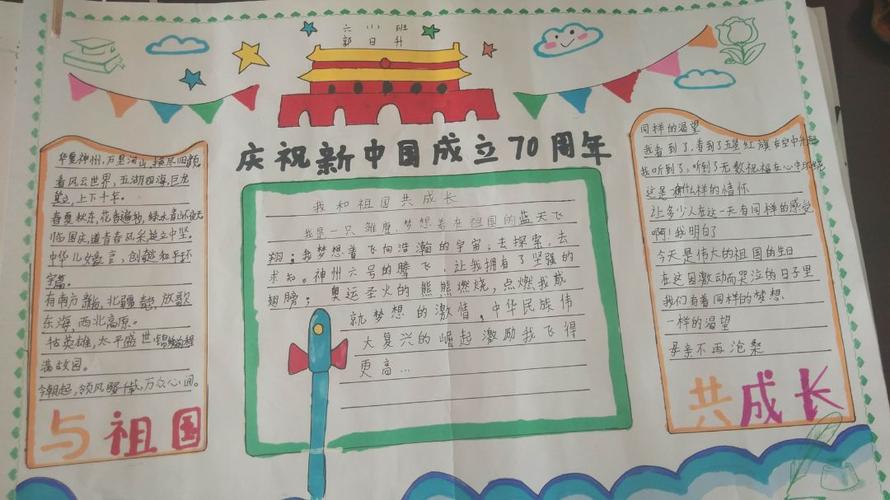 六 班
郭日升
庆祝新中国成立70周年
华夏神州,万里河山,换尽旧颜
看风云世界,五湖四海,巨龙
上下十年。
春夏秋东,花香遍地,绿水青山
临国庆,道青春风采挺立中坚。
中华儿女
有南方 北疆 放歌
东海,西北高原。
英雄,太平盛世
满故园。
今朝起,领风骚 万众心圆。
与祖国
我和祖国共成长
我是一只雏鹰,梦想着在祖国的蓝天飞
翔;我梦想着飞向浩瀚的宇宙,去探索,去
求知。神州六号的腾飞,让我拥有了坚强的
翅膀;奥运圣火的熊熊燃烧,点燃我成
就梦想的激情,中华民族伟
大复兴的崛起激励我飞得
更高…
同样的渴望
我看到了,看到了五星红旗在空中
我听到了,听到了无数祝福在心中
这是 什么样的情怀
让多少人在这一天有同样的感受
啊!我明白了
今天是伟大的祖国的生日
在这因激动而哭泣的日子里
我们有着同样的梦想
一样的渴望
母亲不再沧桑
共成长